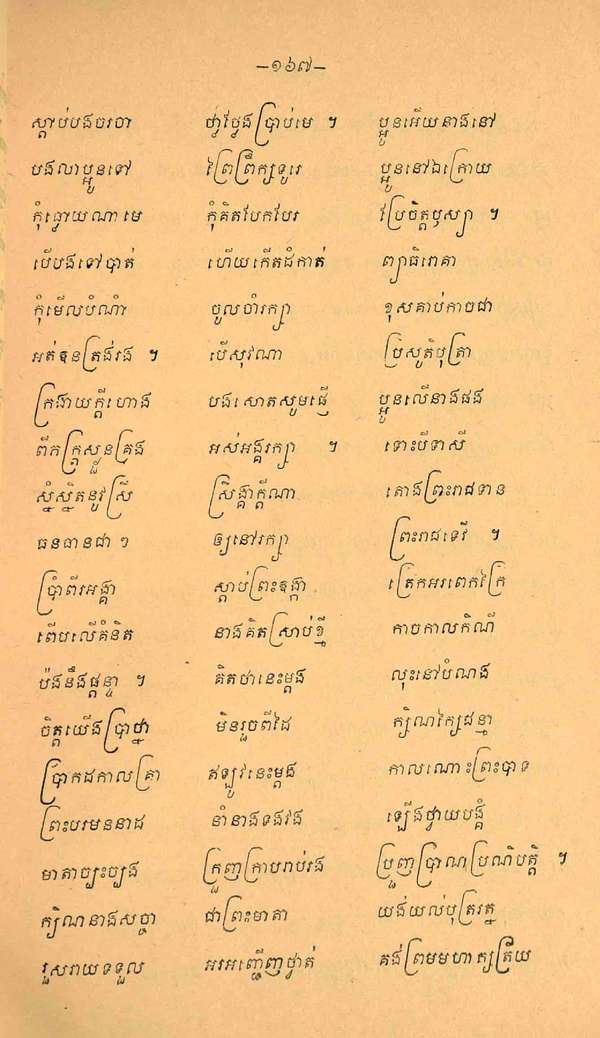 —១៦៧—
ស្ដាប់បងចរចា ថ្វាថ្លែងប្រាប់មេ ។ ប្អូនអើយនាងនៅ
បងលាប្អូនទៅ ព្រៃព្រឹក្សទូរេ ប្អូននៅឯក្រោយ
កុំធ្វោយណាមេ កុំគិតបែកបែរ ប្រែចិត្តឫស្យា ។
បើបងទៅបាត់ ហើយកើតដំកាត់ ព្យាធិរោគា
កុំមើលបំណាំ ចូលចាំរក្សា ខុសគាប់កាចជា
អត់ឱនត្រង់រង ។ បើសុវណា ប្រសូតិបុត្រា
ក្រងាយក្ដីហោង បងសោតសូមផ្ញើ ប្អូនលើនាងផង
ពឹកក្រ្តស្លួនគ្រង អស់អង្គរក្សា ។ ទោះបីទាសី
ស្និំស្និតនូវស្រី ស្រិង្គាក្ដីណា តោងព្រះរាជទាន
ធនធានជា ៗ ឲ្យនៅរក្សា ព្រះរាជទេវី ។
ប្រាំពីរអង្គា ស្ដាប់ព្រះឱង្កា ត្រេកអរពេកក្រៃ
ពើបលើគំនិត នាងគិតស្រាប់ខ្មី កាចកាលកិណី
ប៉ងនឹងផ្ដន្ទា ។ គិតថានេះម្ដង លុះនៅបំណង
ចិត្តយើងប្រាថ្នា មិនរួចពីដៃ ក្សិណក្ស័យជន្មា
ប្រាកដកាលគ្រា ឥឡូវនេះម្ដង កាលណោះព្រះបាទ
ព្រះបរមនាដ នាំនាងទងវង ឡើងថ្វាយបង្គំ
មាតាច្បះច្បង ក្រួញក្រាបរាប់រង ប្រួញប្រាណប្រណិបត្តិ ។
ក្សិណនាងសច្ចា ជាព្រះមាតា យង់យល់បុត្ររត្ន
រួសរាយទទួល អរអញ្ជើញថ្វាត់ គង់ព្រមមហាក្សត្រិយ